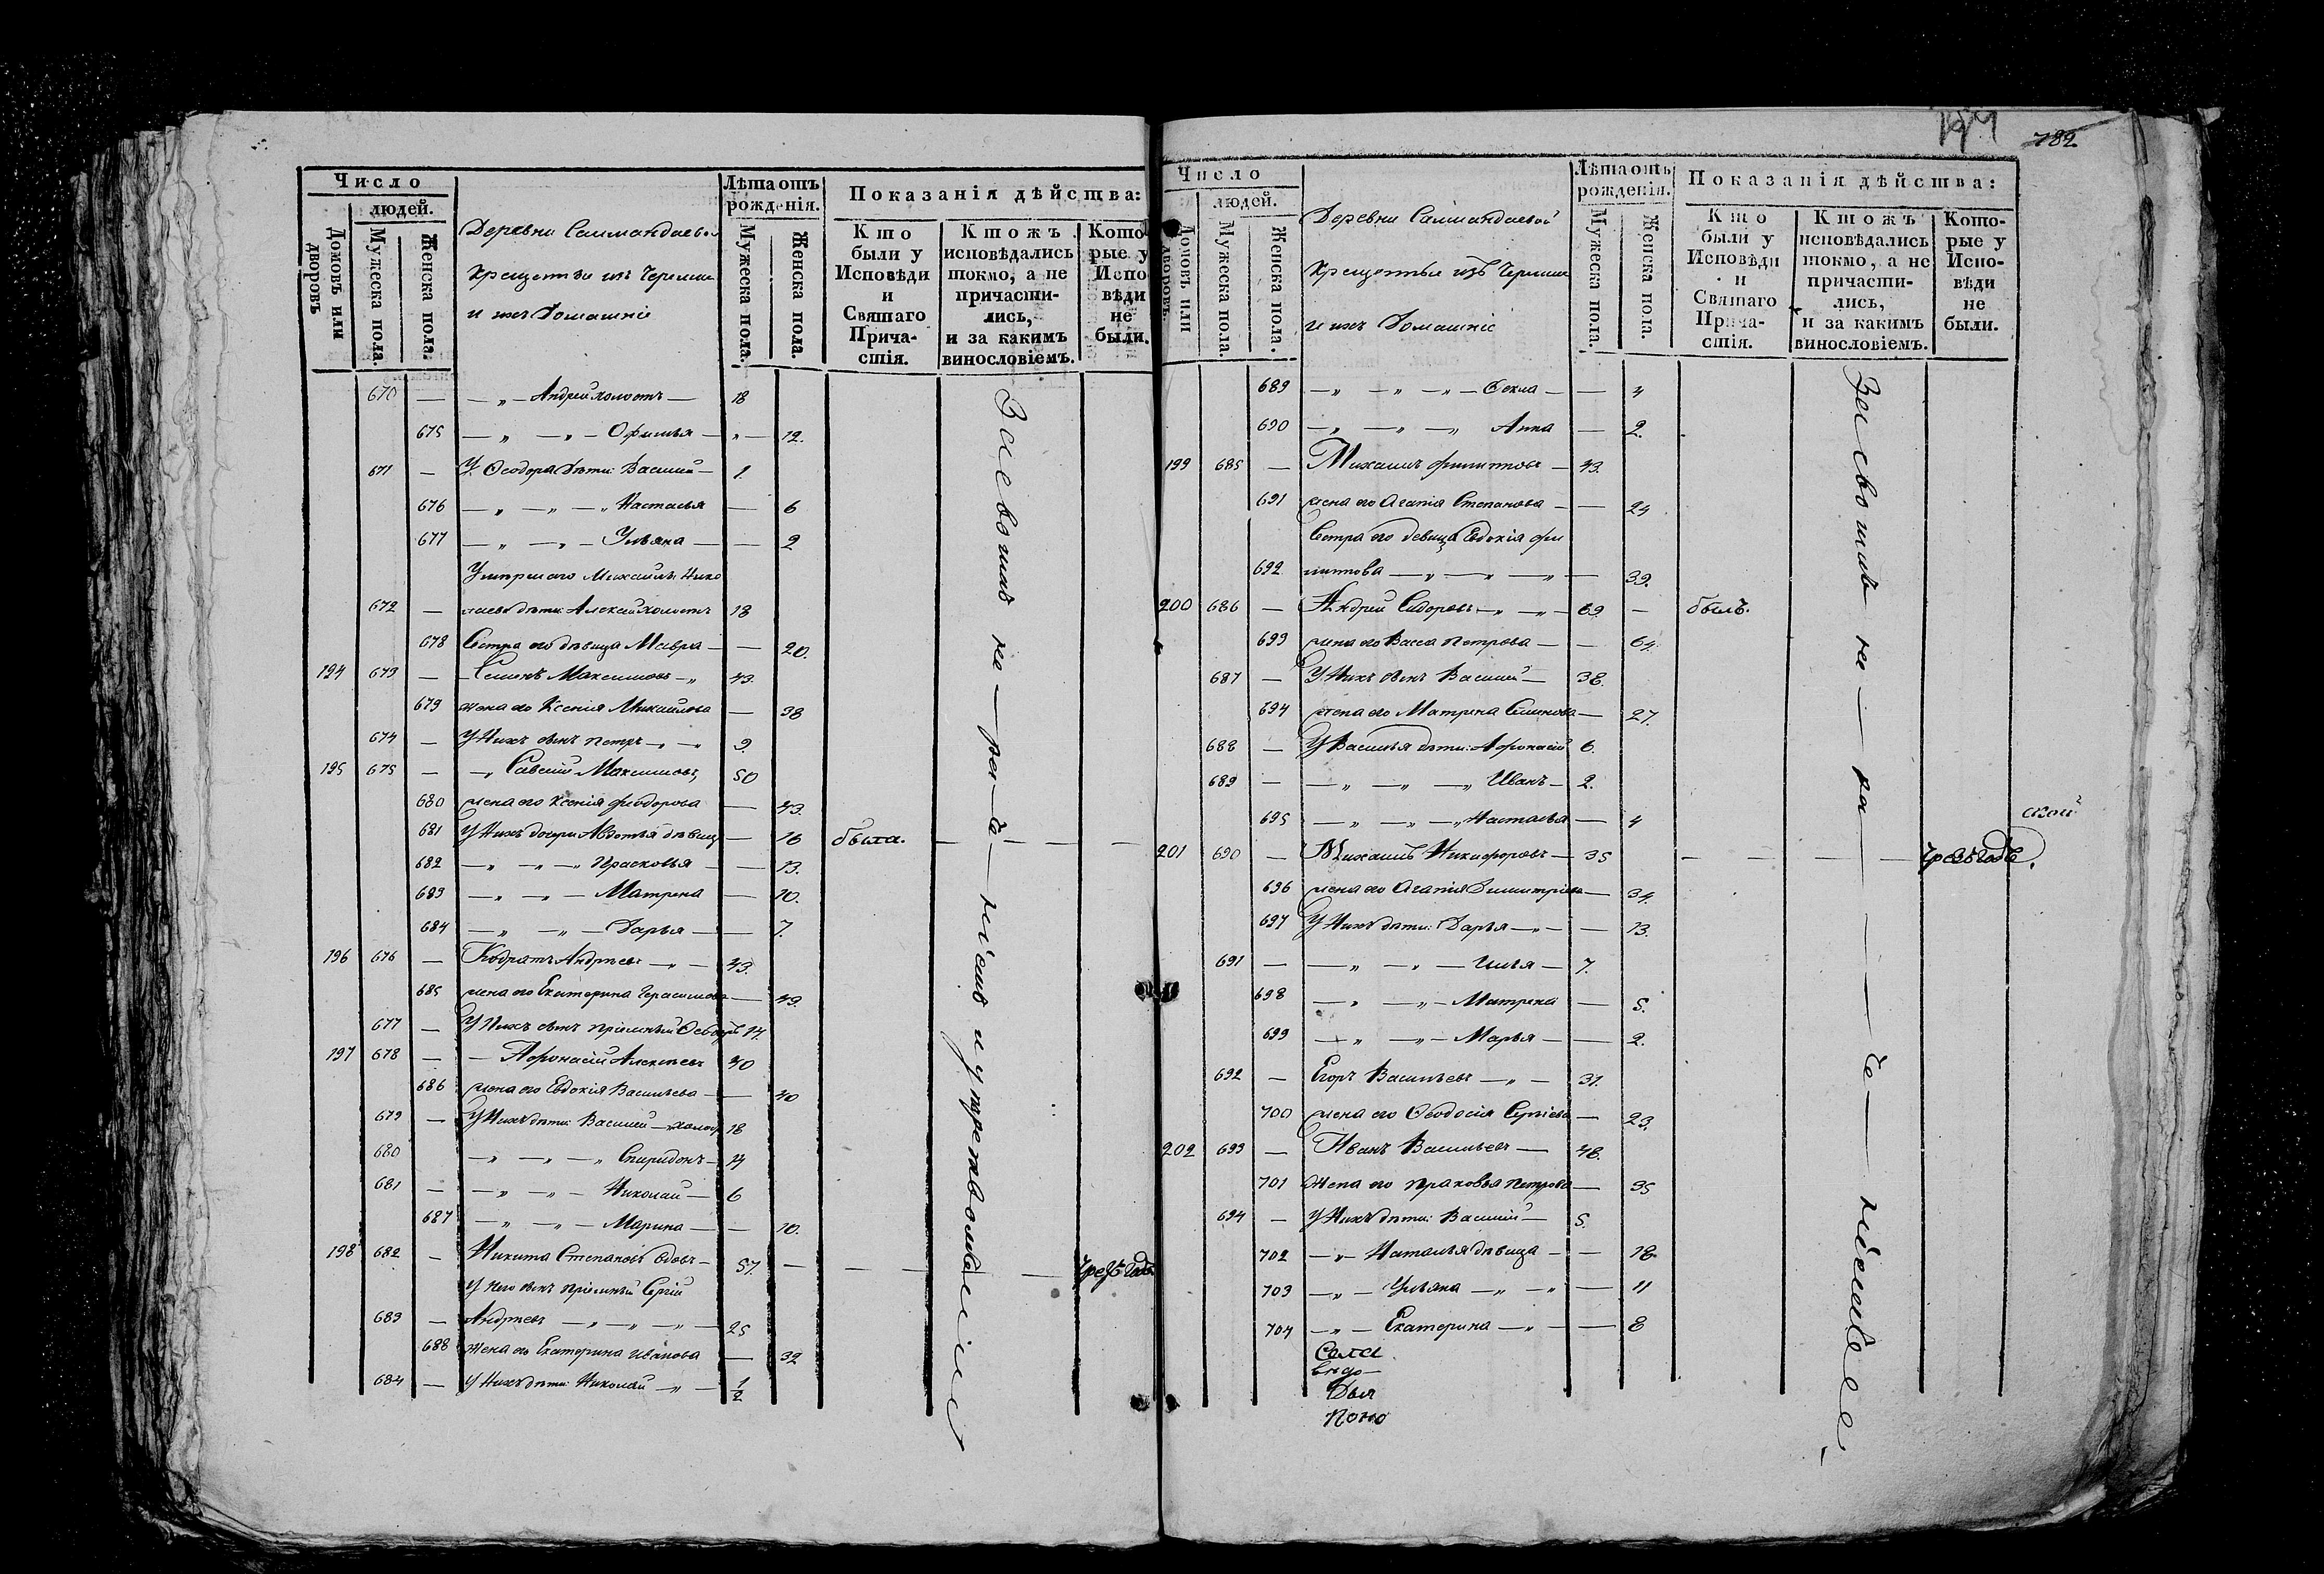 Число
людей.
Домовъ или дворовъ
Мужеска пола.
Женска пола.
Деревни Саимандаево
Крещеные изъ Черемис
и ихъ Домашніе
Лѣта отъ рожденія.
Мужеска пола.
Женска пола.
Показанія дѣйства:
Кто были у Исповѣди и Святаго Причастія.
Ктожъ исповѣдались токмо, а не причастились, и за какимъ винословіемъ.
Которые у Исповѣди не были.
670 — — „ — Андрей холостъ — 18
675 — „ — „ — Офимья — „ — 12.
671 — У Ѳеодора дѣти: Василій — 1.
676 — „ — „ — „ Настасья — 6
677 — „ — „ — Ульяна — — 2
Умершаго Михаила Нико
672 — лаева дѣти: Алексѣй холостъ 18
678 Сестра его дѣвица Мавра — — 20.
194 673 — — Семенъ Максимовъ — „ 43.
679 жена его Ксенія Михайлова — 38
674 — У Нихъ сынъ Петръ — „ — „ 9.
195 675 — — „ Савелій Максимовъ, 50
680 жена его Ксенія Феодорова — 43.
681 У Нихъ дочери Авдотья дѣвица — 16 была.
682 — „ — „ — „ Прасковья — — 13.
683 — „ — „ — Матрена — 10.
684 — „ — „ — Дарья — — 7.
196 676 — Кодратъ Андреевъ — „ — 43.
685 жена его Екатерина Герасимова — 43.
677 — У Нихъ сынъ пріемный Ѳеодоръ 14.
197 678 — — Афонасій Алексѣевъ 40
686 жена его Евдокія Васильева — — 40
679 — У Нихъ дѣти: Василій — холостъ 18
680 — „ — „ — „ Спиридонъ — 14
681 — — „ — „ — Николай — 6
687 — „ — „ — Марина — — 10.
198 682 — Никита Степановъ вдовъ — 57. — — — — чрезъ годъ
У Него сынъ пріемный Сергій
683 — Андреевъ — „ — „ — „ — 25
688 жена его Екатерина Иванова — 32
684 — У Нихъ дѣти: Николай — „ — 1/2
782
Число
людей.
Домовъ или дворовъ.
Мужеска пола.
Женска пола.
Деревни Саимандаевой
Крещеные изъ Черемис
и ихъ Домашніе
Лѣта отъ рожденія.
Мужеска пола.
Женска пола.
Показанія дѣйства:
Кто были у Исповѣди и Святаго Причастія.
Ктожъ исповѣдались токмо, а не причастились, и за какимъ винословіемъ.
Которые у Исповѣди не были.
689 — „ — „ — „ — Ѳекла — — 4
690 — „ — „ — „ Анна — 2.
199 685 — Михаилъ Филиповъ — 43.
691 жена его Агапія Степанова — — 24
Сестра его девица Евдокія Фи
692 липпова — „ — „ — „ — 39.
200 686 — Андрей Сидоровъ — „ — „ — 69. — былъ.
693 жена его Васса Петрова — — 64
687 — У Нихъ сынъ Василій — 38.
694 жена его Матрена Симонова — 27.
688 — У Василья дѣти: Афонасій 6.
689 — — „ — „ — „ Иванъ — 2.
695 — „ — „ — „ Настасья — 4
201 690 — Михаилъ Никифоровъ — 35 — — — — чрезъ годъ.
696 жена его Агапія Димитріева — 34.
697 У Нихъ дѣти: Дарья — „ — — 13.
691 — — „ — „ — Илья — 7.
698 — „ — „ — Матрена — 5.
699 — „ — „ — Марья — — 2.
692 — Егоръ Васильевъ — „ — 31.
700 жена его Ѳеодосія Сергіева — 23.
202 693 — Иванъ Васильевъ — 48.
701 Жена его Праковья Петрова — 35
694 — У Нихъ дѣти: Василій — 5.
702 — „ — Наталья дѣвица — — 18.
703 — „ — Ульяна — „ — „ — 11
704 — „ — Екатерина — „ — — 8